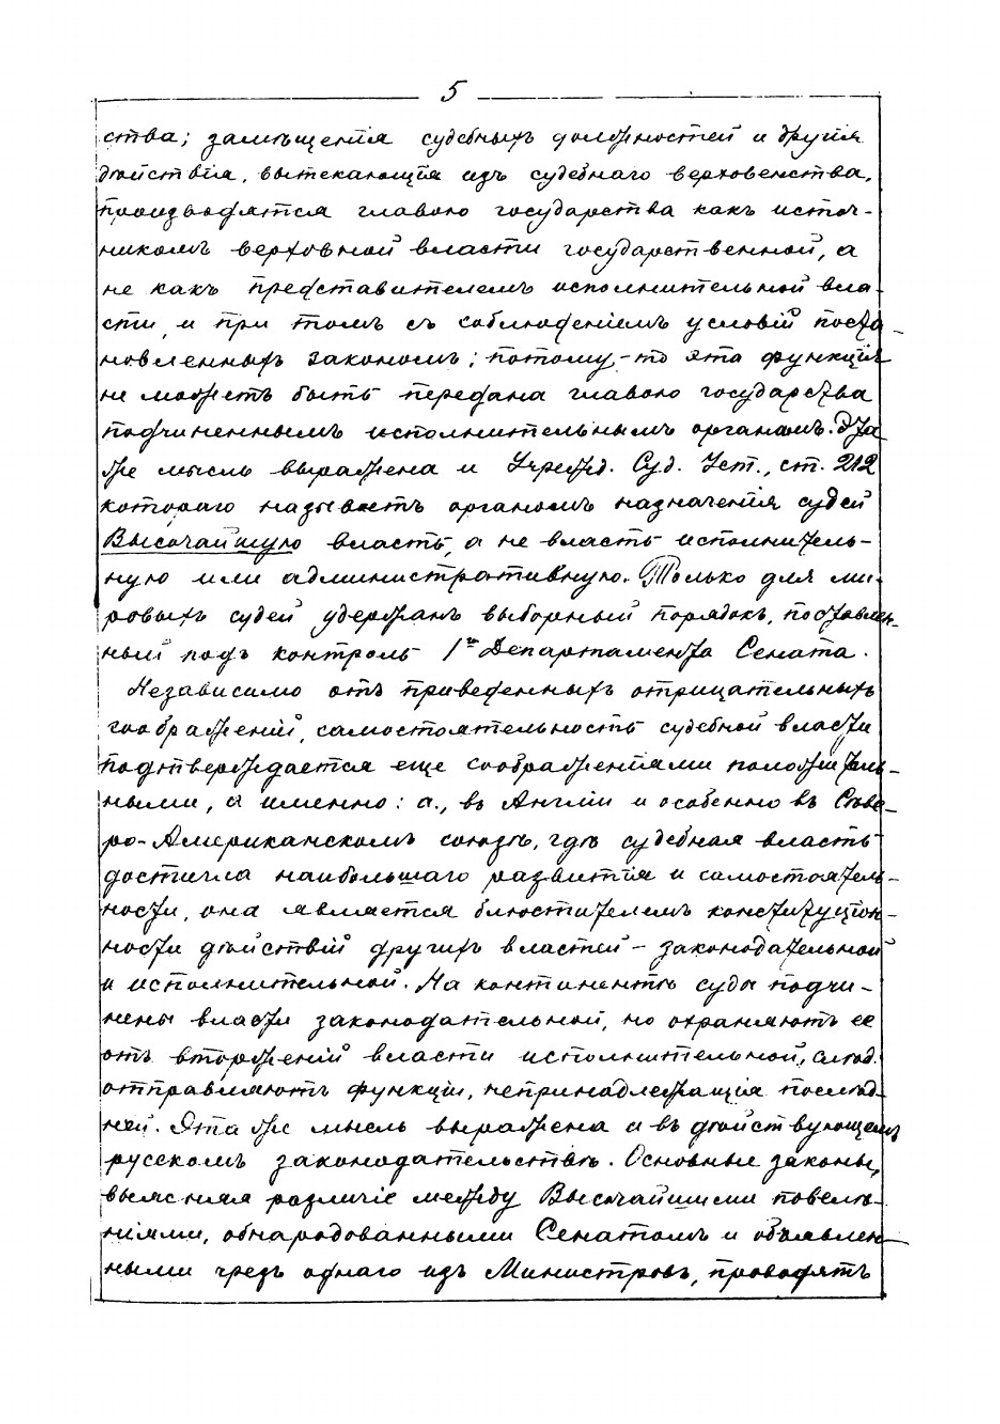 5
ства; замѣщенія судебныхъ должностей и другія
дѣйствія, вытекающія изъ судебнаго верховенства,
производятся главою государства какъ источ-
никомъ верховной власти государственной, а
не какъ представителемъ исполнительной вла-
сти, и при томъ съ соблюденіемъ условій поста-
новленныхъ закономъ; потому-то эта функція
не можетъ быть передана главою государства
подчиненнымъ исполнительнымъ органамъ. Эта
же мысль выражена и Учрежд. Суд. Уст., ст. 212
котораго называетъ органомъ назначенія судей
Высочайшую власть, а не власть исполнитель-
ную или административную. Только для ми-
ровыхъ судей удержанъ выборный порядокъ, поставлен-
ный подъ контроль 1го Департамента Сената.
Независимо отъ приведенныхъ отрицательныхъ
соображеній, самостоятельность судебной власти
подтверждается еще соображеніями положитель-
ными, а именно: а., въ Англіи и особенно въ Сѣве-
ро-Американскомъ союзѣ, гдѣ судебная власть
достигла наибольшаго развитія и самостоятель-
ности, она является блюстителемъ конституціон-
ности дѣйствій другихъ властей - законодательной
и исполнительной. На континентѣ суды подчи-
нены власти законодательной, но охраняютъ ее
отъ вторженій власти исполнительной, слѣд.
отправляютъ функціи, непринадлежащія послѣд-
ней. Эта же мысль выражена и въ дѣйствующемъ
русскомъ законодательствѣ. Основные законы,
выясняя различіе между Высочайшими повелѣ-
ніями, обнародованными Сенатомъ и объявлен-
ными чрезъ однаго изъ Министровъ, проводятъ